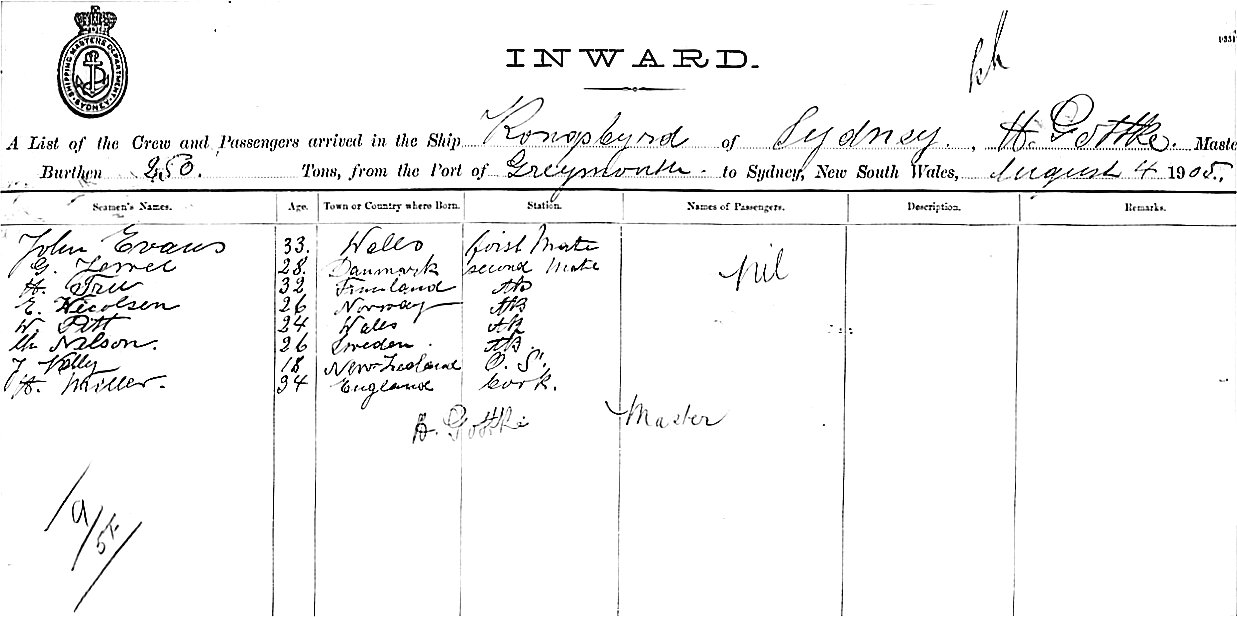 SHIPPING MASTERS DEPARTMENT SYDNEY
INWARD.
A List of the Crew and Passengers arrived in the Ship Kongsbyrd of Sydney, H. Gottke. Maste
Burthen 250. Tons, from the Port of Greymouth to Sydney, New South Wales, August 4 1905.
Seamen's Names. Age. Town or Country where Born. Station. Names of Passengers. Description. Remarks.
John Evans 33. Wales first Mate
G. 28. Danmark second Mate nil
H. 32 Finnland AB
E. Nicolsen 26 Norway AB
W. Pitt 24 Wales AB
Nelson. 26 Sweden. AB.
18 New Zealand O. S.
H. Miller. 34 England Cook.
H. Gottke Master